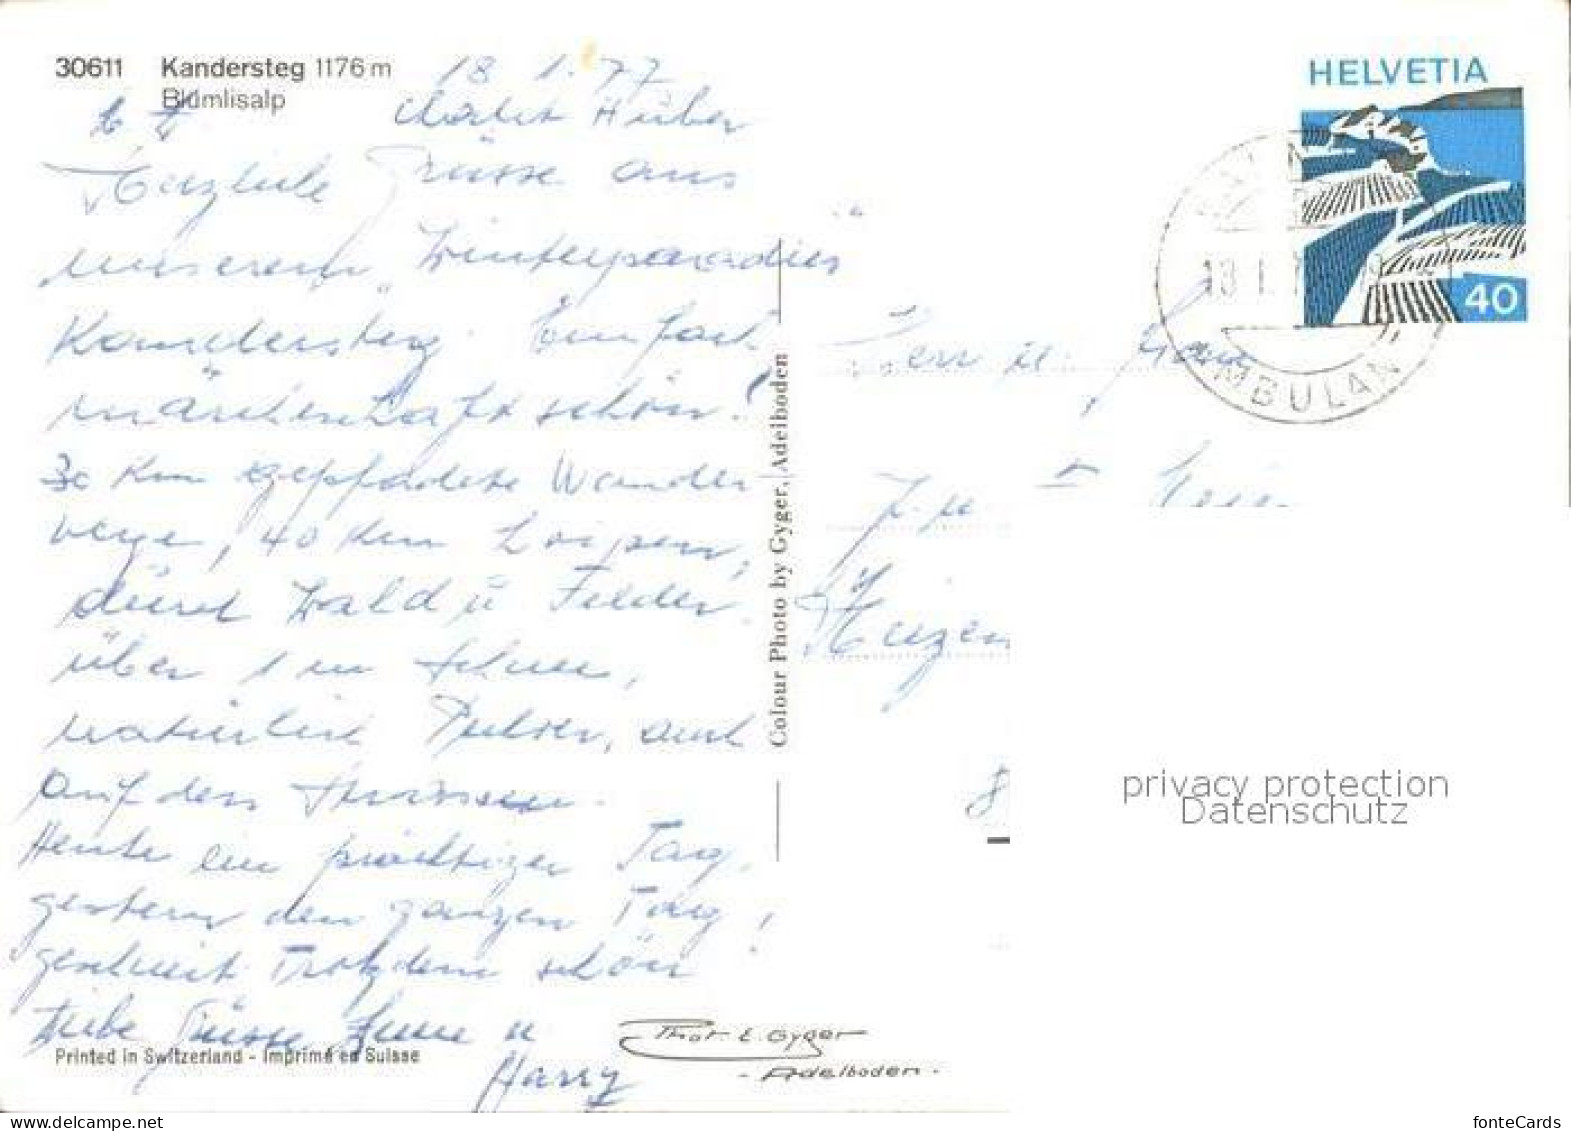 30611 Kandersteg 1176 m
Blümlisalp
18 1. 77
Huber
Herzliche Grüsse aus
unserem „Winterparadies"
Kandersteg. Einfach
märchenhaft schön!
30 Km gepfadete Wander
wege, 40 Km Loipen,
durch Wald u Felder.
über 1 m Schnee,
natürlich Pulver, auch
auf den Strassen.
Heute ein prächtiger Tag,
gestern den ganzen Tag
geschneit. Trotzdem schön!
Liebe Grüsse u
Harry
Printed in Switzerland - Imprimé en Suisse
Phot. E. Gyger
- Adelboden -
Colour Photo by Gyger, Adelboden
HELVETIA
40
AMBULANT
Herr u.
privacy protection
Datenschutz
fonteCards